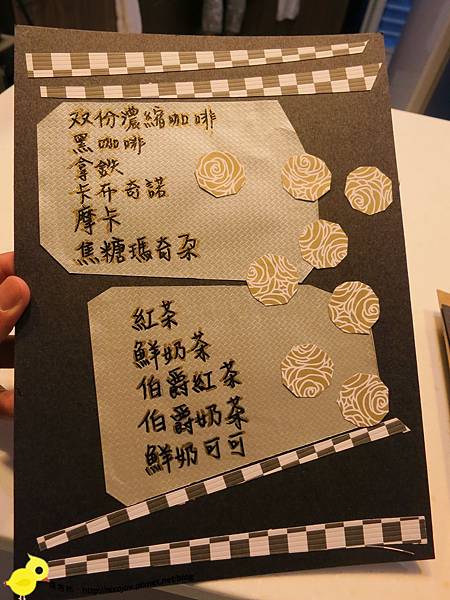 双份濃縮咖啡
黑咖啡
拿鉄
卡布奇諾
摩卡
焦糖瑪奇朶
紅茶
鮮奶茶
伯爵紅茶
伯爵奶茶
鮮奶可可